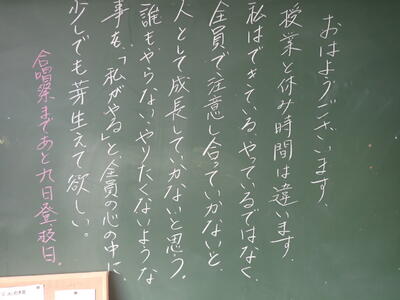 おはようございます、
授業と休み時間は違います。
私はできている、やっているではなく、
全員で、注意し合っていかないと、
人として成長していかないと思う。
誰もやらない、やりたくないような
事を、「私がやる」と全員の心の中に、
少しでも芽生えて欲しい。
合唱祭まであと九日登校日。